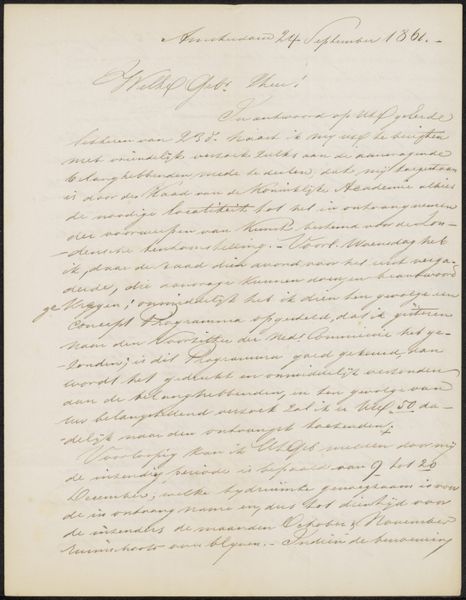 Amsterdam 24 September 1861.-
WelEd Geb. Heer!
In antwoord op UEd geëerde
letteren van 23 d. haast ik mij UEd te berigten
met vriendelijk verzoek zulks aan de aanvragende
belanghebbenden mede te deelen, dat mij toegestaan
is door den Raad van de Koninklijke Academie alhier
de noodige localiteit tot het in ontvang nemen
der voorwerpen van Kunst bestemd voor de Lon-
densche tentoonstelling. - Voor Woensdag heb
ik, daar de raad dien avond voor het eerst verga-
derde, die aanvrage kunnen doen en beantwoord
gekregen; onmiddelijk heb ik dien ten gevolge een
concept Programma opgesteld, dat ik gisteren
naar den Voorzitter der Ned. Commissie heb ge-
zonden; is dit Programma goed gekeurd, dan
wordt het gedrukt en onmiddelijk verzonden
aan de belanghebbenden, en ten gevolge van
Uw belangstellend verzoek zal ik er UEd 50 da-
delijk na den ontvangst toezenden.
Voorloopig kan ik UEd melden door mij
de inzending periode is bepaald van 9 tot 20
December, welke tydruimte genoegzaam is voor
de in ontvang name en dus tot dien tijd voor
de inzenders de maanden October & November
ruimschoots over blyven. - Indien de